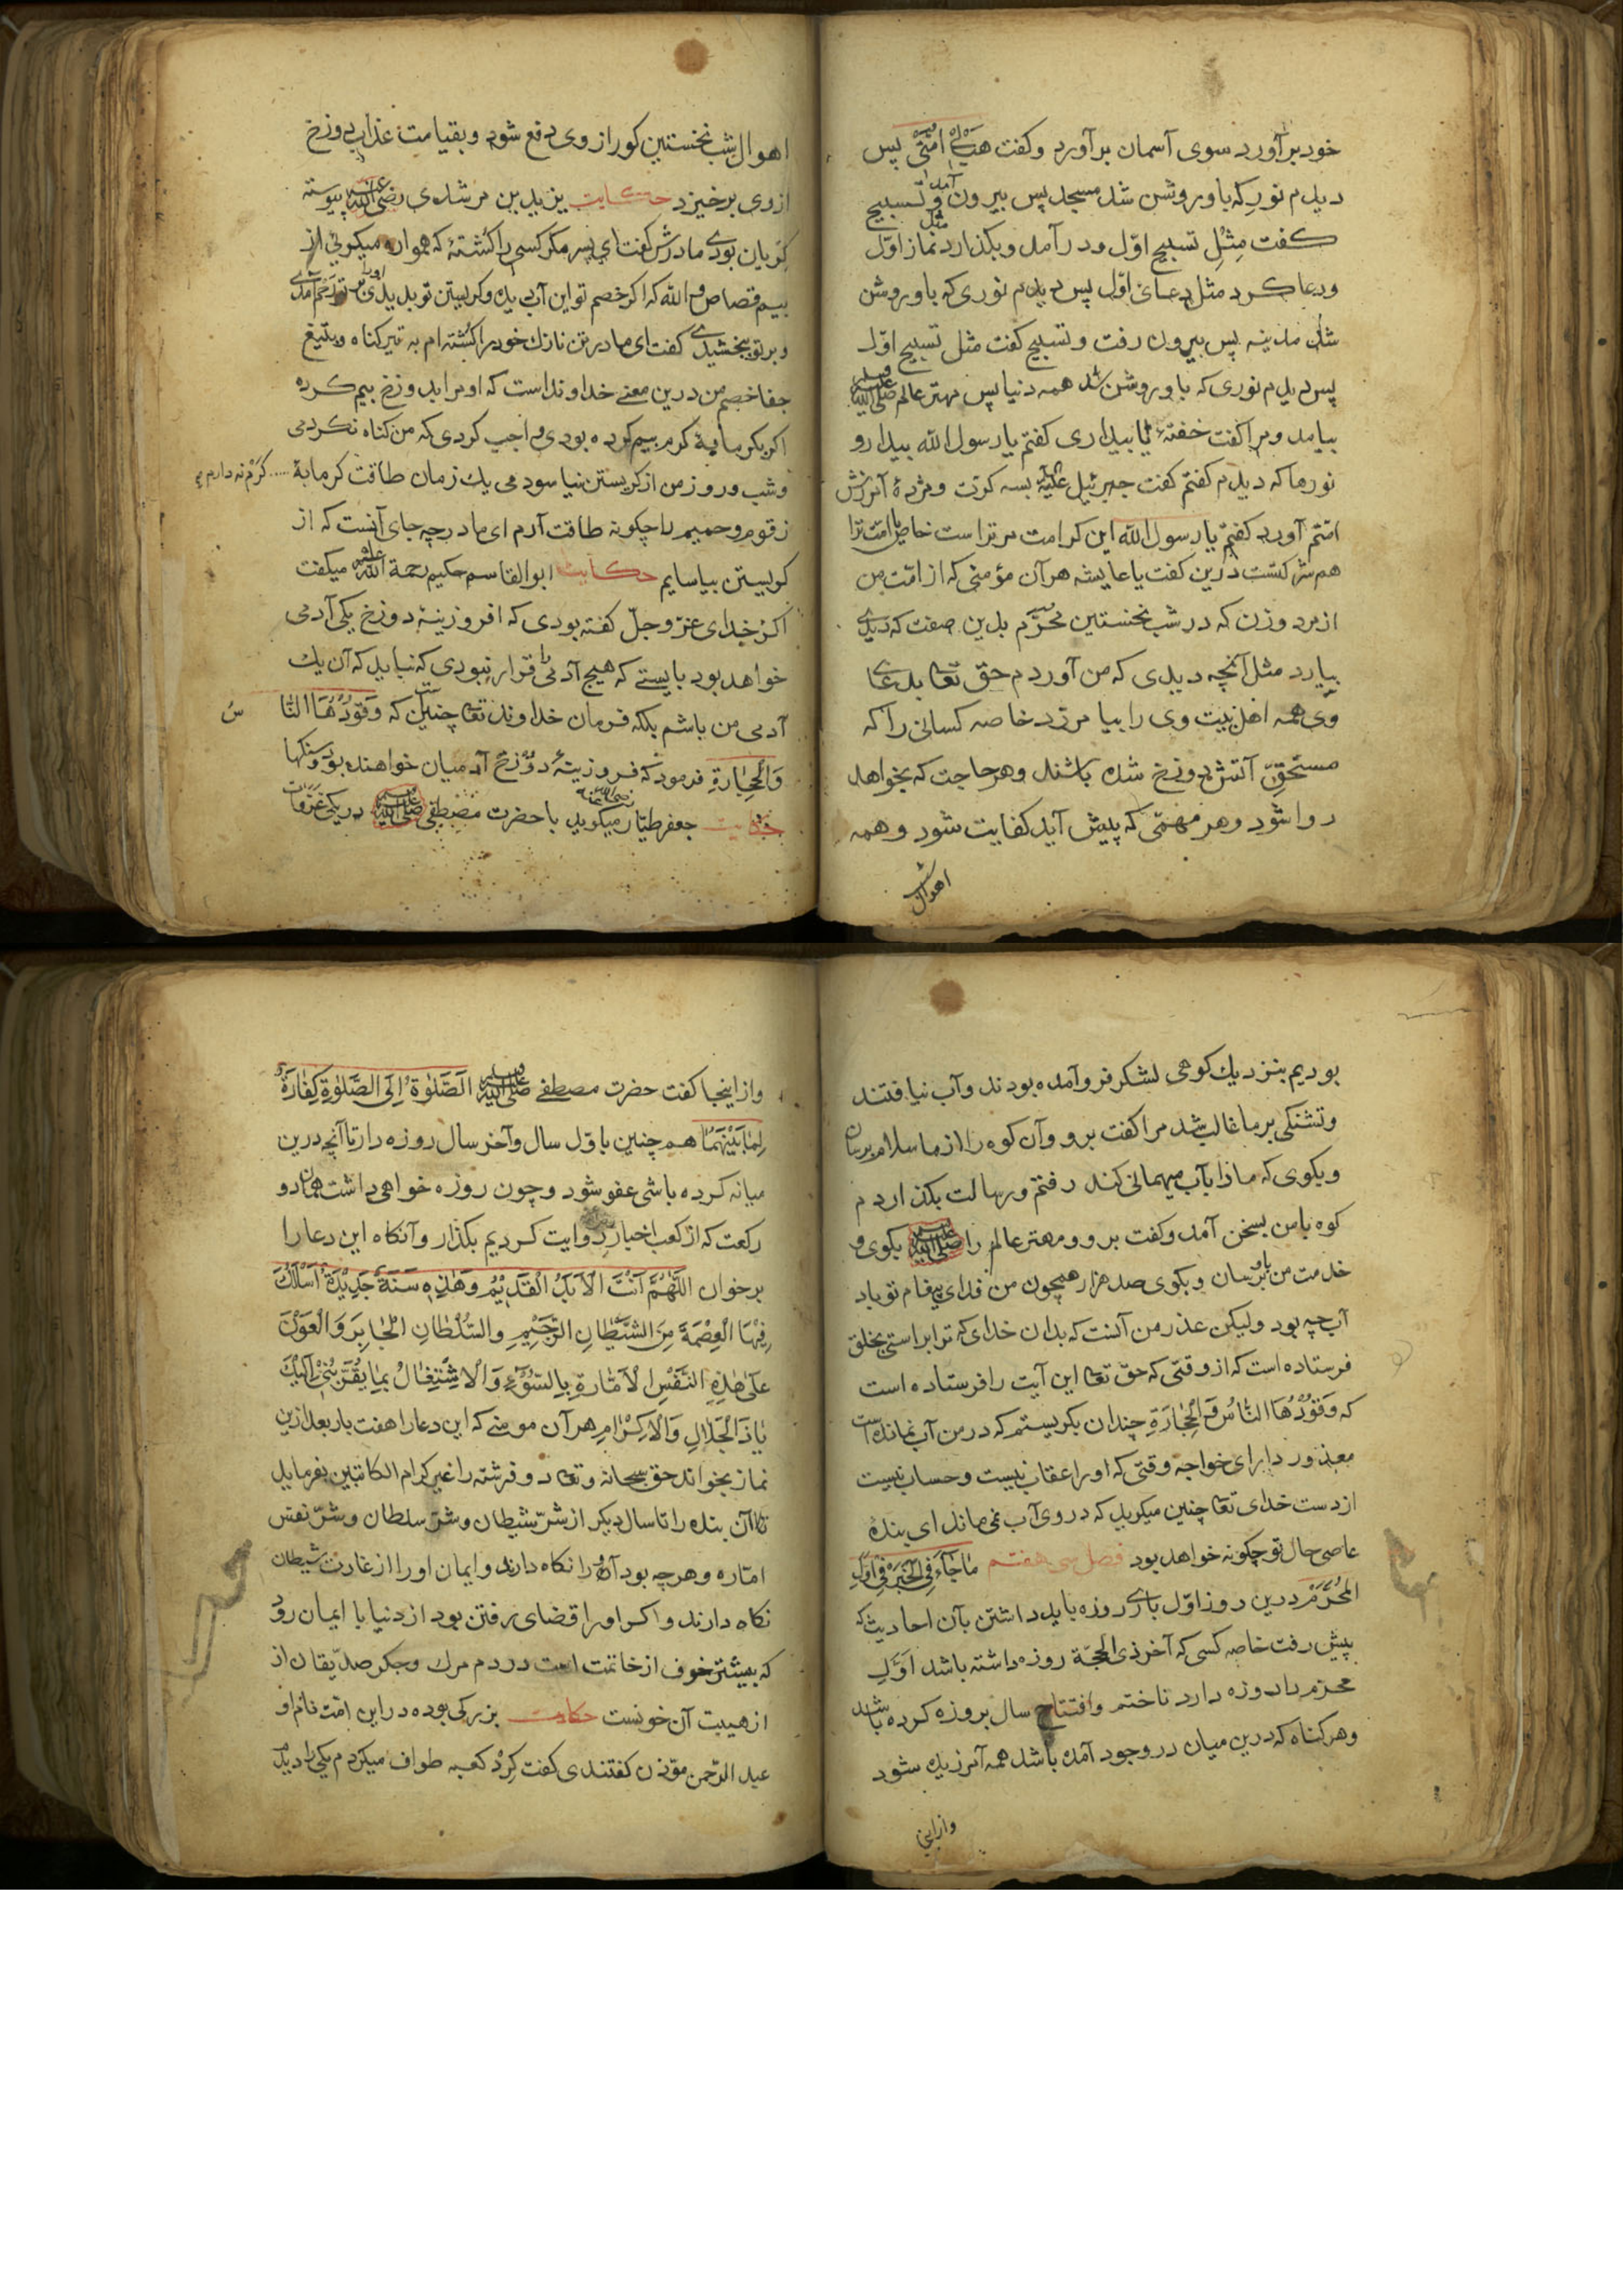 خود برآورد سوی آسمان برآورد و کفت هب لی امتی پس
دیدم نوری که باو روشن شد مسجد پس بیرون آمد و تسبیح
کفت مثل تسبیح اول و درآمد و بکذارد نماز مثل اول
و دعا کرد مثل دعای اول پس دیدم نوری که باو روشن
شد مدینه پس بیرون رفت و تسبیح کفت مثل تسبیح اول
پس دیدم نوری که باو روشن شد همه دنیا پس مهتر عالم صلی الله علیه وسلم
بیامد و مرا کفت خفتهٔ یا بیداری کفتم یا رسول الله بیدارو
نورها که دیدم کفتم کفت جبرئیل علیه بسه کرت و مژدهٔ آمرزش
امتم آورد کفتم یا رسول الله این کرامت مر تراست خاص یا امت ترا
هم شرکتست درین کفت یا عایشه هر آن مؤمنی که از امت من
از مرد و زن که در شب نخستین محرم بدین صفت که دیدی
بیارد مثل آنچه دیدی که من آوردم حق تعا بدعای
وی همه اهل بیت وی را بیامرزد خاصه کسانی را که
مستحق آتش دوزخ شده باشند و هر حاجت که بخواهد
روا شود و هر مهمی که پیش آید کفایت شود و همه
اهوال شب
اهوال شب نخستین کور از وی دفع شود و بقیامت عذاب دوزخ
از وی برخیزد حکایت یزید بن مرشدی رضی الله عنه پیوسته
کریان بودی مادرش کفت ای پسر مکر کسی را کشتهٔ که همواره میکریی از
بیم قصاص والله که اکر خصم تو این آب دیده و کریستن تو بدیدی بر تو ترحم آمدی
و بر تو ببخشیدی کفت ای مادر تن نازک خود را کشته ام به تیر کناه و بتیغ
جفا خصم من درین معنی خداوند است که او مرا بدوزخ بیم کرده
اکر بکرمابهٔ کرم بیم کرده بودی واجب کردی که من کناه نکردمی
و شب و روز من از کریستن نیاسودمی یک زمان طاقت کرمابهٔ ..... کرم نه دارم
زقوم و حمیم را چکونه طاقت آرم ای مادر چه جای آنست که از
کریستن بیاسایم حکایت ابوالقاسم حکیم رحمة الله علیه میکفت
اکر خدای عز وجل کفته بودی که افروزینهٔ دوزخ یکی آدمی
خواهد بود بایستی که هیچ آدمی را قرار نبودی که نباید که آن یک
آدمی من باشم بلکه فرمان خداوند تعا چنین است که وَقُودُهَا النَّا سُ
وَالْحِجَارَةِ فرمود که فروزینهٔ دوزخ آدمیان خواهند بود و سنکها
حکایت جعفر طیار رضی الله عنه میکوید با حضرت مصطفی صلی الله علیه وسلم در یکی غزوات
بودیم بنزدیک کوهی لشکر فرو آمده بودند و آب نیافتند
و تشنکی بر ما غالب شد مرا کفت برو و آن کوه را از ما سلام برسان
و بکوی که ما را بآب میهمانی کند رفتم و رسالت بکذاردم
کوه با من بسخن آمد و کفت برو و مهتر عالم را صلی الله علیه وسلم بکوی و
خدمت من باو برسان و بکوی صد هزار همچون من فدای پیغام تو باد
آب چه بود ولیکن عذر من آنست که بدان خدای که ترا براستی بخلق
فرستاده است که از وقتی که حق تعا این آیت را فرستاده است
که وَقُودُهَا النَّاسُ وَالْحِجَارَةِ چندان بکریستم که در من آب نمانده است
معذور دار ای خواجه وقتی که او را عقاب نیست و حساب نیست
از دست خدای تعا چنین میکرید که در وی آب نمی ماند ای بندهٔ
عاصی حال تو چکونه خواهد بود فصل سی هفتم مَا جَاءَ فِی الْخَبَرْ فِی اَوَّلِ
الْمُحَرَّمِ درین روز اول باری روزه باید داشتن بآن احادیث که
پیش رفت خاصه کسی که آخر ذی الحجة روزه داشته باشد اول
محرم را روزه دارد تا ختم و افتتاح سال بروزه کرده باشد
و هر کناه که درین میان در وجود آمده باشد همه آمرزیده شود
و ازاینجا
و ازاینجا کفت حضرت مصطفی صلی الله علیه وسلم الصَّلٰوةُ اِلَی الصَّلٰوةِ کَفَّارَةٌ
لِمَا بَیْنَهُمَا همچنین باول سال و آخر سال روزه دار تا آنچه درین
میانه کرده باشی عفو شود و چون روزه خواهی داشت همان دو
رکعت که از کعب اخبار روایت کردیم بکذار و آنکاه این دعا را
برخوان اَللّٰهُمَّ اَنْتَ الْاَبَدُ الْقَدِیْمُ وَهٰذِهِ سَنَةٌ جَدِیْدَةٌ اَسْأَلُكَ
فِیْهَا الْعِصْمَةَ مِنَ الشَّیْطَانِ الرَّجِیْمِ وَالسُّلْطَانِ الْجَابِرِ وَالْعَوْنَ
عَلٰی هٰذِهِ النَّفْسِ الْاَمَّارَةِ بِالسُّوْءِ وَالْاِشْتِغَالُ بِمَا یُقَرِّبُنِیْ اِلَیْكَ
یَا ذَا الْجَلَالِ وَالْاِکْرَامِ هر آن مومنی که این دعا را هفت بار بعد ازین
نماز بخواند حق سبحانه و تعا دو فرشته را غیر کرام الکاتبین بفرماید
تا آن بنده را تا سال دیکر از شر شیطان و شر سلطان و شر نفس
اماره و هرچه بود آنرا نکاه دارند و ایمان او را از غارت شیطان
نکاه دارند و اکر او را قضای رفتن بود از دنیا با ایمان رود
که بیشتر خوف از خاتمت است در دم مرک و جکر صدیقان از
از هیبت آن خونست حکایت بزرکی بوده در این امت نام او
عبد الرحمن موذن کفتندی کفت کرد کعبه طواف میکردم یکی را دیدم